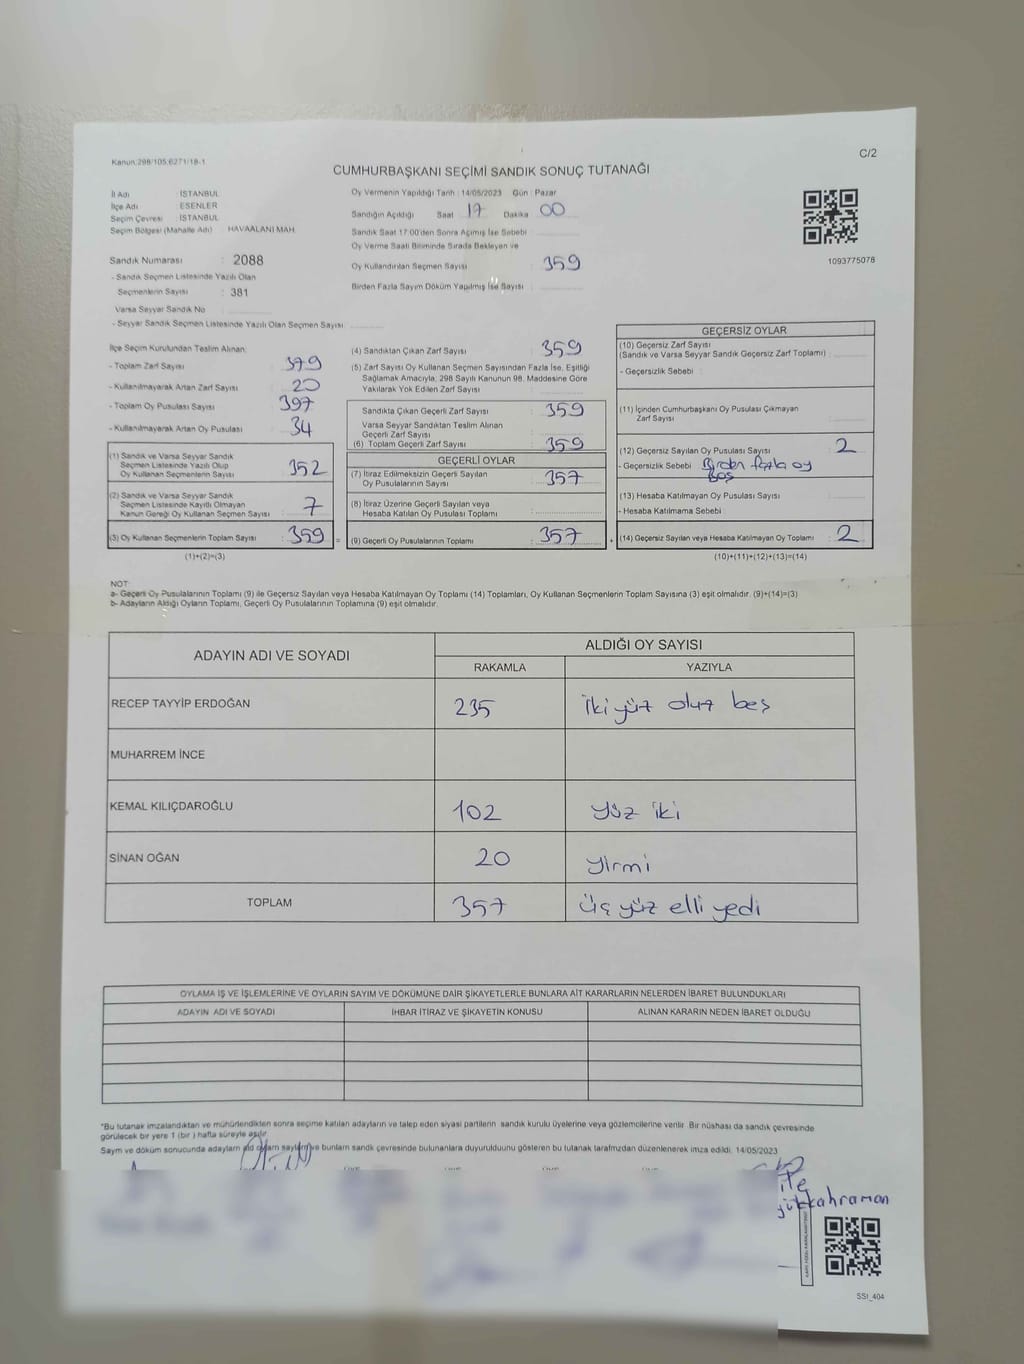 Kanun:298/105,6271/18-1
C/2
CUMHURBAŞKANI SEÇİMİ SANDIK SONUÇ TUTANAĞI
İl Adı : İSTANBUL
İlçe Adı : ESENLER
Seçim Çevresi : İSTANBUL
Seçim Bölgesi (Mahalle Adı) HAVAALANI MAH.
Sandık Numarası : 2088
- Sandık Seçmen Listesinde Yazılı Olan
Seçmenlerin Sayısı : 381
Varsa Seyyar Sandık No
- Seyyar Sandık Seçmen Listesinde Yazılı Olan Seçmen Sayısı:
Oy Vermenin Yapıldığı Tarih : 14/05/2023 Gün : Pazar
Sandığın Açıldığı Saat 17 Dakika 00
Sandık Saat 17:00'den Sonra Açılmış İse Sebebi
Oy Verme Saati Bitiminde Sırada Bekleyen ve
Oy Kullandırılan Seçmen Sayısı 359
Birden Fazla Sayım Döküm Yapılmış İse Sayısı :
1093775078
İlçe Seçim Kurulundan Teslim Alınan:
- Toplam Zarf Sayısı 379
- Kullanılmayarak Artan Zarf Sayısı 20
- Toplam Oy Pusulası Sayısı 397
- Kullanılmayarak Artan Oy Pusulası 34
(1) Sandık ve Varsa Seyyar Sandık
Seçmen Listesinde Yazılı Olup
Oy Kullanan Seçmenlerin Sayısı 352
(2) Sandık ve Varsa Seyyar Sandık
Seçmen Listesinde Kayıtlı Olmayan
Kanun Gereği Oy Kullanan Seçmen Sayısı : 7
(3) Oy Kullanan Seçmenlerin Toplam Sayısı : 359 =
(1)+(2)=(3)
(4) Sandıktan Çıkan Zarf Sayısı 359
(5) Zarf Sayısı Oy Kullanan Seçmen Sayısından Fazla İse, Eşitliği
Sağlamak Amacıyla, 298 Sayılı Kanunun 98. Maddesine Göre
Yakılarak Yok Edilen Zarf Sayısı :
Sandıkta Çıkan Geçerli Zarf Sayısı 359
Varsa Seyyar Sandıktan Teslim Alınan
Geçerli Zarf Sayısı
(6) Toplam Geçerli Zarf Sayısı 359
GEÇERLİ OYLAR
(7) İtiraz Edilmeksizin Geçerli Sayılan
Oy Pusulalarının Sayısı : 357
(8) İtiraz Üzerine Geçerli Sayılan veya
Hesaba Katılan Oy Pusulası Toplamı :
(9) Geçerli Oy Pusulalarının Toplamı : 357 +
GEÇERSİZ OYLAR
(10) Geçersiz Zarf Sayısı
(Sandık ve Varsa Seyyar Sandık Geçersiz Zarf Toplamı) :
- Geçersizlik Sebebi :
(11) İçinden Cumhurbaşkanı Oy Pusulası Çıkmayan
Zarf Sayısı
(12) Geçersiz Sayılan Oy Pusulası Sayısı : 2
- Geçersizlik Sebebi : Birden fazla oy
Boş
(13) Hesaba Katılmayan Oy Pusulası Sayısı :
- Hesaba Katılmama Sebebi :
(14) Geçersiz Sayılan veya Hesaba Katılmayan Oy Toplamı : 2
(10)+(11)+(12)+(13)=(14)
NOT:
a- Geçerli Oy Pusulalarının Toplamı (9) ile Geçersiz Sayılan veya Hesaba Katılmayan Oy Toplamı (14) Toplamları, Oy Kullanan Seçmenlerin Toplam Sayısına (3) eşit olmalıdır. (9)+(14)=(3)
b- Adayların Aldığı Oyların Toplamı, Geçerli Oy Pusulalarının Toplamına (9) eşit olmalıdır.
ADAYIN ADI VE SOYADI
ALDIĞI OY SAYISI
RAKAMLA YAZIYLA
RECEP TAYYİP ERDOĞAN 235 iki yüz otuz beş
MUHARREM İNCE
KEMAL KILIÇDAROĞLU 102 yüz iki
SİNAN OĞAN 20 yirmi
TOPLAM 357 üç yüz elli yedi
OYLAMA İŞ VE İŞLEMLERİNE VE OYLARIN SAYIM VE DÖKÜMÜNE DAİR ŞİKAYETLERLE BUNLARA AİT KARARLARIN NELERDEN İBARET BULUNDUKLARI
ADAYIN ADI VE SOYADI İHBAR İTİRAZ VE ŞİKAYETİN KONUSU ALINAN KARARIN NEDEN İBARET OLDUĞU
*Bu tutanak imzalandıktan ve mühürlendikten sonra seçime katılan adayların ve talep eden siyasi partilerin sandık kurulu üyelerine veya gözlemcilerine verilir. Bir nüshası da sandık çevresinde
görülecek bir yere 1 (bir) hafta süreyle asılır.
Sayım ve döküm sonucunda adayların ve bunların sandık çevresinde bulunanlara duyurulduğunu gösteren bu tutanak tarafımızdan düzenlenerek imza edildi. 14/05/2023
SSt_404